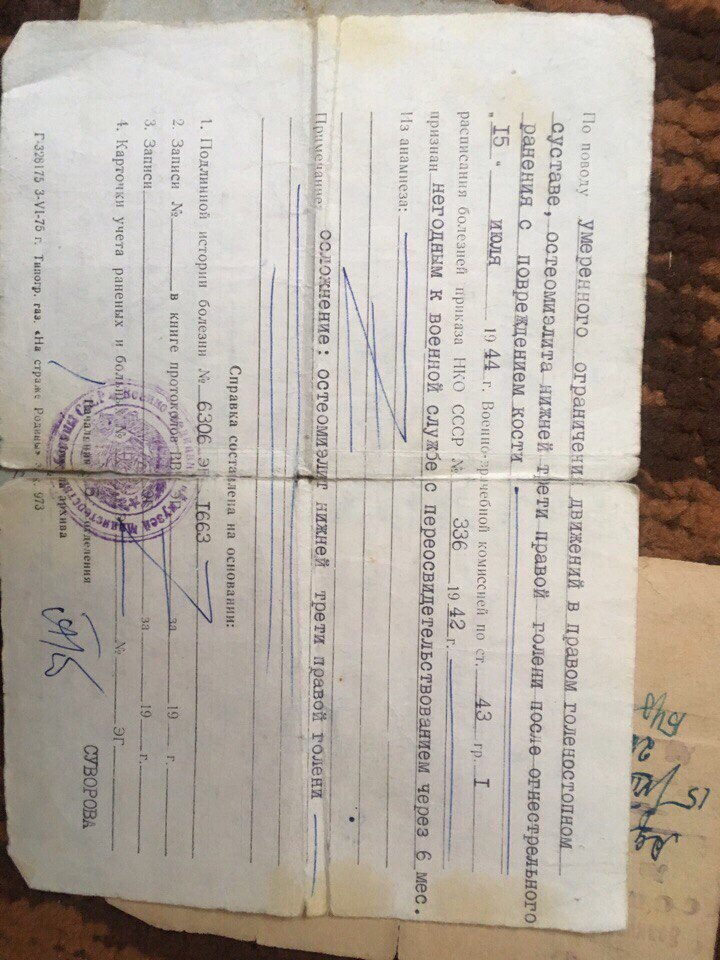 По поводу умеренного ограничения движений в правом голеностопном
суставе, остеомиэлита нижней трети правой голени после огнестрельного
ранения с повреждением кости
„ I5 “ июля 1944 г. Военно-врачебной комиссией по ст. 43 гр. I
расписания болезней приказа НКО СССР № 336 1942 г.
признан негодным к военной службе с переосвидетельствованием через 6 мес.
Из анамнеза:
Примечание: осложнение: остеомиэлит нижней трети правой голени
Справка составлена на основании:
1. Подлинной истории болезни № 6306 ЭГ I663
2. Записи № в книге протоколов за 19 г.
3. Записи за 19 г.
4. Карточки учета раненых и больных № ЭГ
Начальник отделения
архива
СУВОРОВА
Г-326175 3-VI-75 г. Типогр. газ. «На страже Родины» 973